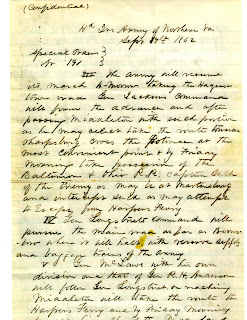 (Confidential)
Hd Qrs Army of Northern Va
Sept 9th 1862
Special Orders
No 191
III The Army will resume
its march to-morrow taking the Hagers-
town road. Gen Jackson's command
will form the advance and after
passing Middletown with such portion
as he may select take the route towards
Sharpsburg cross the Potomac at the
most convenient point & by Friday
morning take possession of the
Baltimore & Ohio R.R. capture such
of the Enemy as may be at Martinsburg
and intercept such as may attempt
to Escape from Harpers Ferry
IV Gen Longstreet's command will
pursue the main road as far as Boons-
boro where it will halt with reserve supply
and baggage trains of the army
V Gen McLaws with his
own division and that of Gen R.H. Anderson
will follow Gen Longstreet on reaching
Middletown will take the route to
Harpers Ferry and by Friday Morning